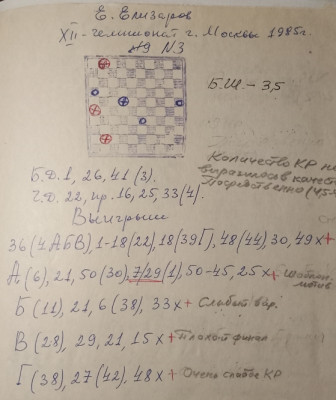 Е. Елизаров
XII - чемпионат г. Москвы 1985г.
№3
Б.Ш. - 3,5
Количество КР не
в качест
Посредственно (4,5
Б.Д. 1, 26, 41 (3).
Ч.Д. 22, пр. 16, 25, 33 (4).
Выигрыш
36 (4АБВ), 1-18 (22), 18 (39Г), 48 (44), 30, 49x+
А (6), 21, 50 (30), 7/29 (1), 50-45, 25x+
мотив
Б (11), 21, 6 (38), 33x + Слабый вар.
В (28), 29, 21, 15x + Плохой финал
Г (38), 27 (42), 48x + Очень слабое КР